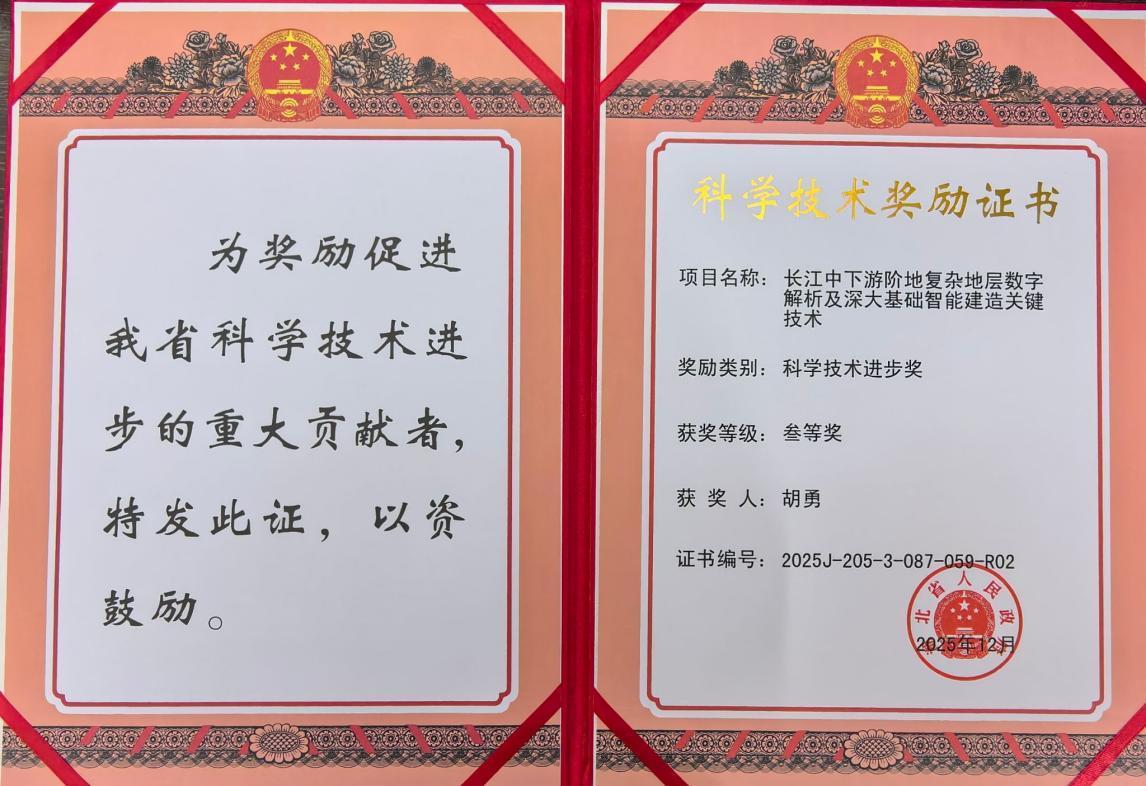 为奖励促进
我省科学技术进
步的重大贡献者，
特发此证，以资
鼓励。
科学技术奖励证书
项目名称：长江中下游阶地复杂地层数字
解析及深大基础智能建造关键
技术
奖励类别：科学技术进步奖
获奖等级：叁等奖
获 奖 人：胡勇
证书编号：2025J-205-3-087-059-R02
北省人民政
2025年12月